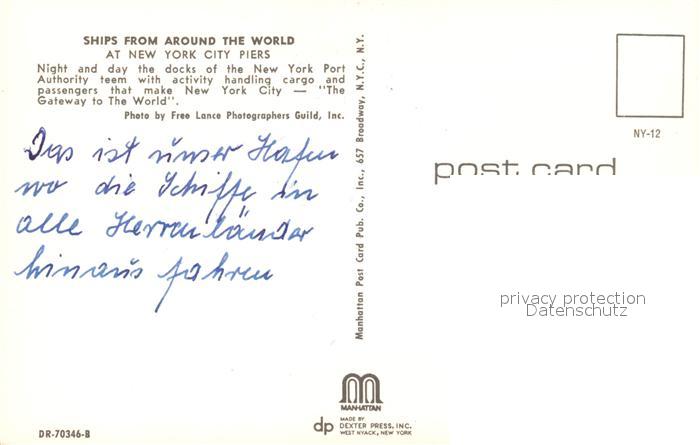 SHIPS FROM AROUND THE WORLD
AT NEW YORK CITY PIERS
Night and day the docks of the New York Port
Authority teem with activity handling cargo and
passengers that make New York City — "The
Gateway to The World".
Photo by Free Lance Photographers Guild, Inc.
Das ist unser Hafen
wo die Schiffe in
alle Herrenländer
hinaus fahren
Manhattan Post Card Pub. Co., Inc., 657 Broadway, N.Y.C., N.Y.
NY-12
post card
privacy protection
Datenschutz
MANHATTAN
dp MADE BY
DEXTER PRESS, INC.
WEST NYACK, NEW YORK
DR-70346-B